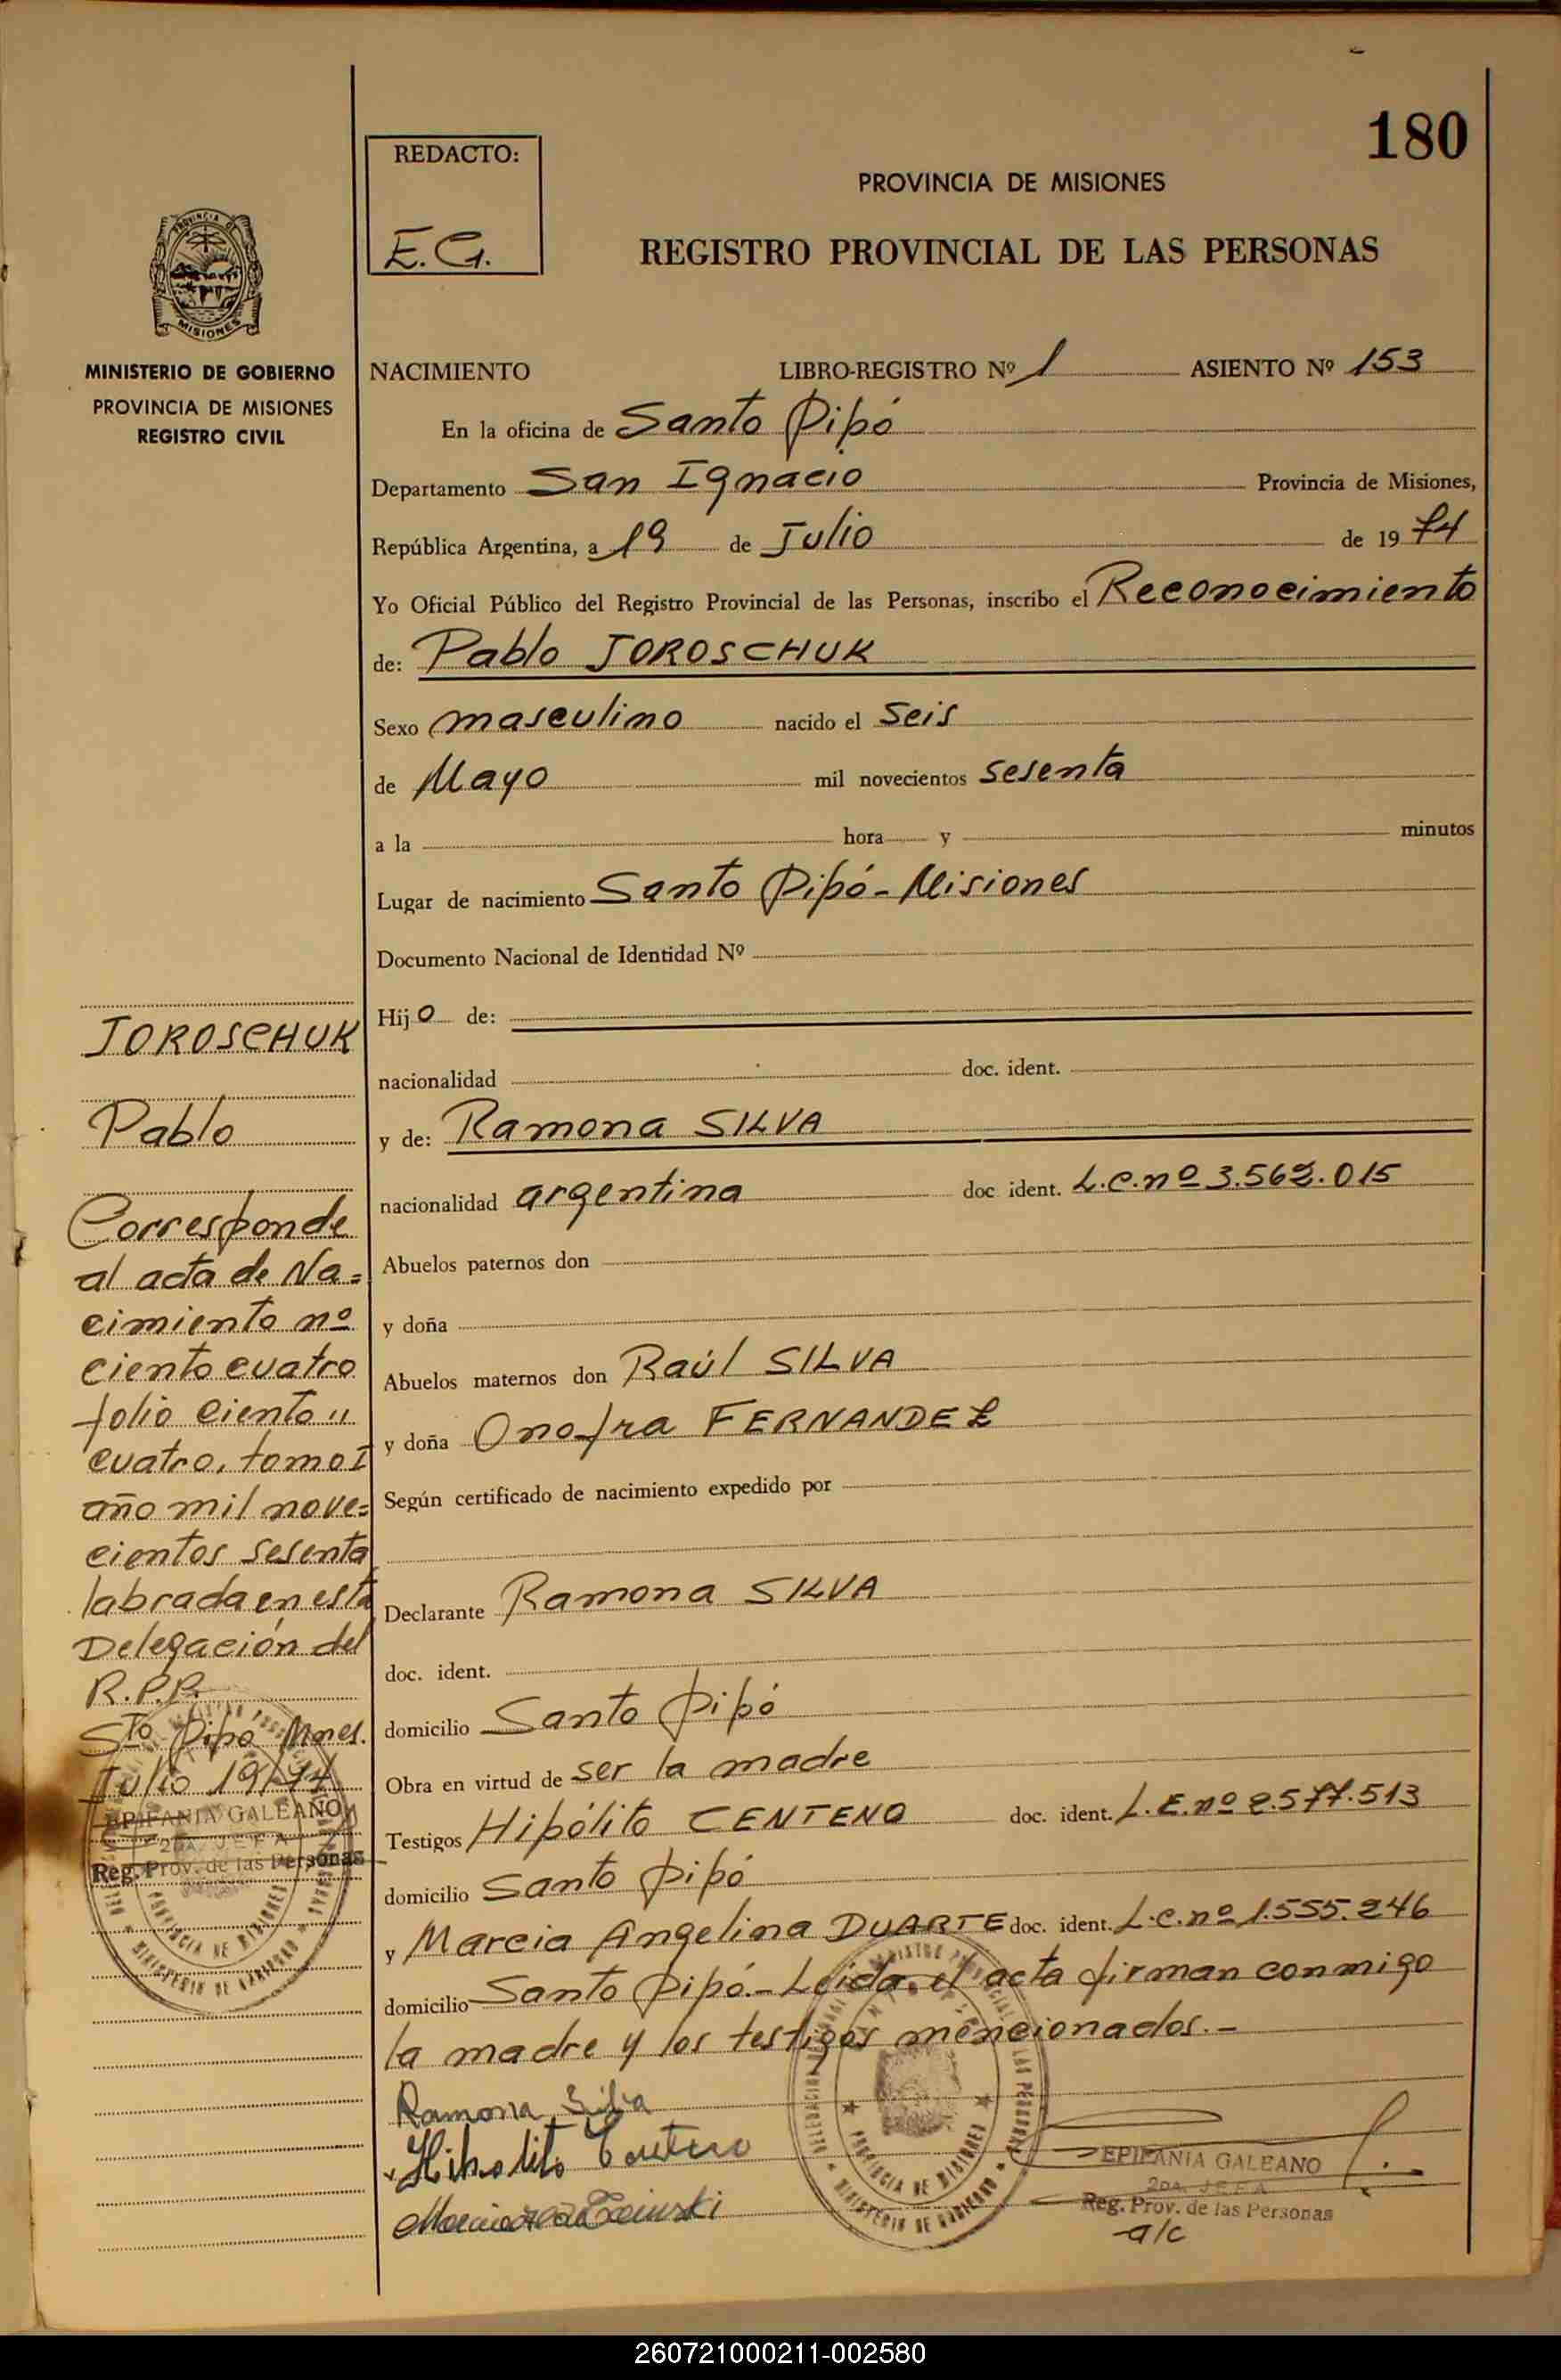 180
REDACTO:
E.G.
PROVINCIA DE MISIONES
REGISTRO PROVINCIAL DE LAS PERSONAS
MISIONES
MINISTERIO DE GOBIERNO
PROVINCIA DE MISIONES
REGISTRO CIVIL
NACIMIENTO LIBRO-REGISTRO Nº 1 ASIENTO Nº 153
En la oficina de Santo Pipó
Departamento San Ignacio Provincia de Misiones,
República Argentina, a 19 de Julio de 1974
Yo Oficial Público del Registro Provincial de las Personas, inscribo el Reconocimiento
de: Pablo JOROSCHUK
Sexo masculino nacido el seis
de Mayo mil novecientos sesenta
a la hora y minutos
Lugar de nacimiento Santo Pipó - Misiones
Documento Nacional de Identidad Nº
Hijo de:
nacionalidad doc. ident.
y de: Ramona SILVA
nacionalidad argentina doc ident. L.C. nº 3.562.015
Abuelos paternos don
y doña
Abuelos maternos don Raúl SILVA
y doña Onofra FERNANDEZ
Según certificado de nacimiento expedido por
Declarante Ramona SILVA
doc. ident.
domicilio Santo Pipó
Obra en virtud de ser la madre
Testigos Hipólito CENTENO doc. ident. L.E. nº 2.577.513
domicilio Santo Pipó
y Marcia Angelina DUARTE doc. ident. L.C. nº 1.555.246
domicilio Santo Pipó.- Leida el acta firman conmigo
la madre y los testigos mencionados.-
Ramona Silva
Hipolito Centeno
EPIFANIA GALEANO
2DA. JEFA
Reg. Prov. de las Personas
a/c
JOROSCHUK
Pablo
Corresponde
al acta de Na=
cimiento nº
ciento cuatro
folio ciento "
cuatro, tomo I
año mil nove=
cientos sesenta
labrada en esta
Delegación del
R.P.P.
Sto Pipó Mnes.
Julio 19/74
EPIFANIA GALEANO
2DA. JEFA
Reg. Prov. de las Personas
PROVINCIA DE MISIONES
MINISTERIO DE GOBIERNO
260721000211-002580